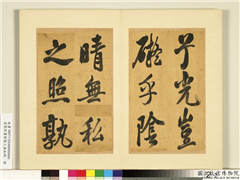 光豈
礙乎陰
晴無私
之照孰